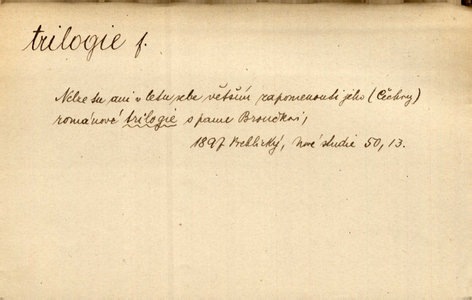 trilogie f.
Nelze tu ani v letu sebe větším zapomenouti jeho (Čechovy)
románové trilogie o panu Broučkovi,
1897 Vrchlický, Nové studie 50, 13.